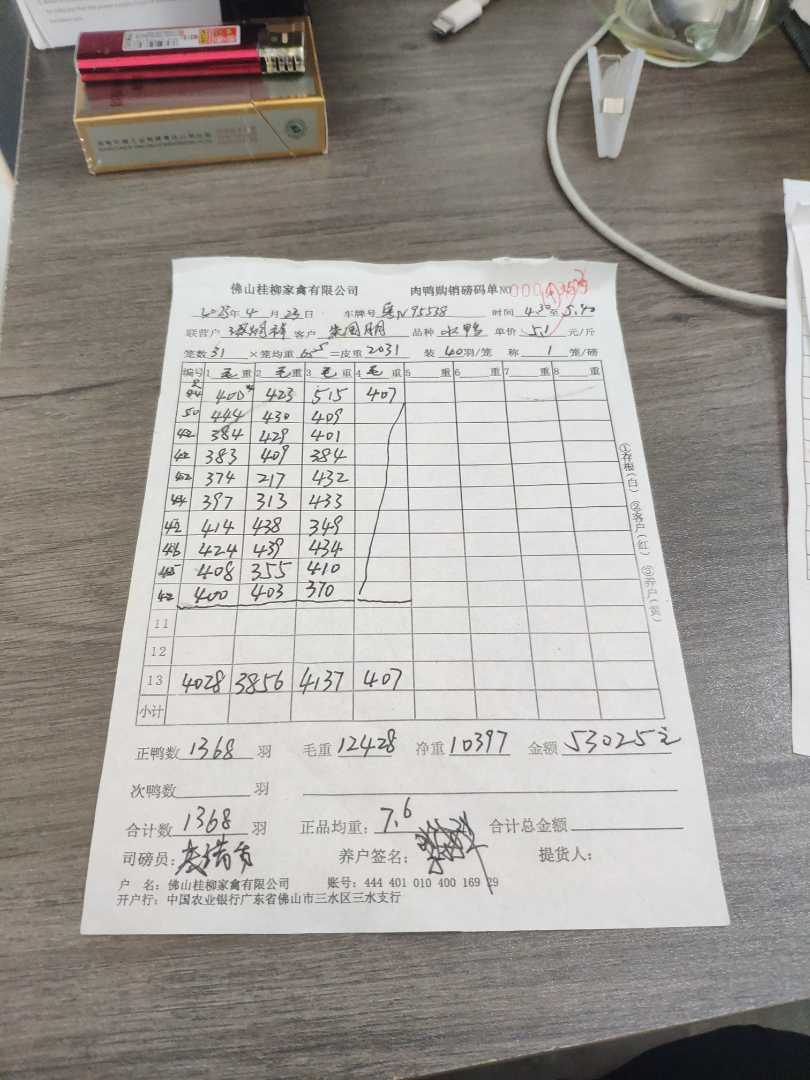 佛山桂柳家禽有限公司 肉鸭购销磅码单NO
2023年4月23日 车牌号 N95538 时间 4.30 至 5.40
联营户 客户 朱国明 品种 水鸭 单价 5.1 元/斤
笼数 31 ×笼均重 65.5 =皮重 2031 装 40 羽/笼 称 1 笼/磅
编号 1 毛 重 2 毛 重 3 毛 重 4 毛 重 5 重 6 重 7 重 8 重
400 423 515 407
50 444 430 409
42 384 429 401
42 383 409 384
42 374 217 432
44 397 313 433
42 414 438 349
46 424 439 434
45 408 355 410
42 400 403 370
11
12
13 4028 3856 4137 407
小计
正鸭数 1368 羽 毛重 12428 净重 10397 金额 53025元
次鸭数 羽
合计数 1368 羽 正品均重: 7.6 合计总金额
司磅员: 养户签名: 提货人:
户 名: 佛山桂柳家禽有限公司 账号: 444 401 010 400 169 29
开户行: 中国农业银行广东省佛山市三水区三水支行
①存根(白) ②客户(红) ③养户(黄)